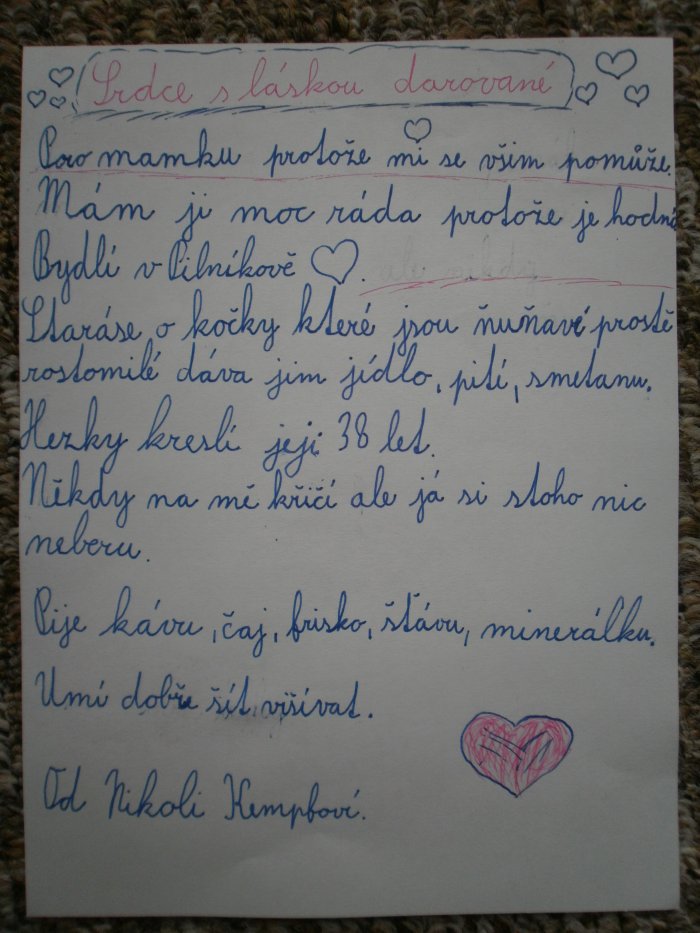 Srdce s láskou darované
Pro mamku protože mi se všim pomůže.
Mám ji moc ráda protože je hodná
Bydlí v Pilníkově .
Staráse o kočky které jsou ňuňavé prostě
rostomilé dáva jim jídlo, pití, smetanu.
Hezky kreslí jeji 38 let.
Někdy na mě křičí ale já si stoho nic
neberu.
Pije kávu, čaj, frisko, šťávu, minerálku.
Umí dobře šít, višívat.
Od Nikoli Kempfoví.